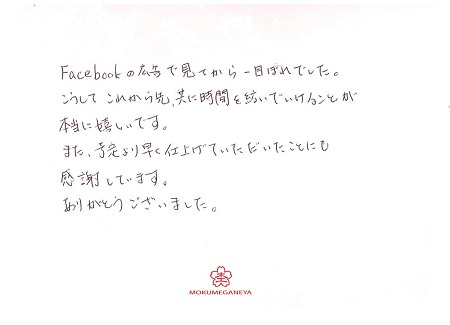 Facebookの広告で見てから一目ぼれでした。
こうして これから先、共に時間を紡いでいけることが
本当に嬉しいです。
また、予定より早く仕上げていただいたことにも
感謝しています。
ありがとうございました。
木
MOKUMEGANEYA